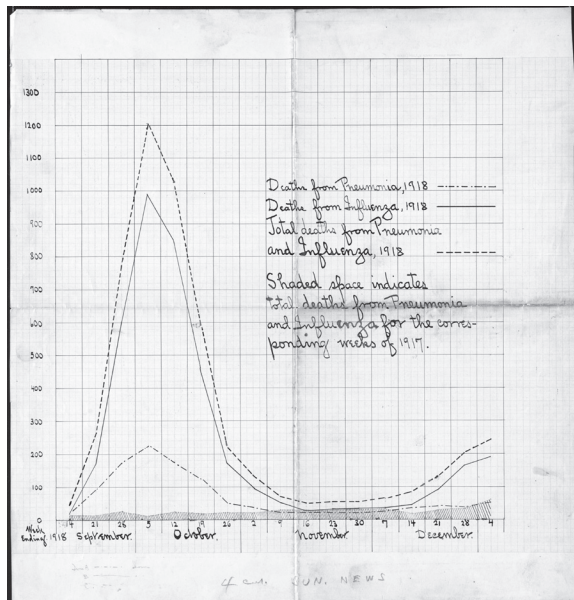 1300
1200
1100
1000
900
800
700
600
500
400
300
200
100
0
Deaths from Pneumonia, 1918
Deaths from Influenza, 1918
Total deaths from Pneumonia
and Influenza, 1918
Shaded space indicates
total deaths from Pneumonia
and Influenza for the corres-
ponding weeks of 1917.
14 21 28 5 12 19 26 2 9 16 23 30 7 14 21 28 4
Week
Ending 1918 September. October. November. December.
SUN. NEWS